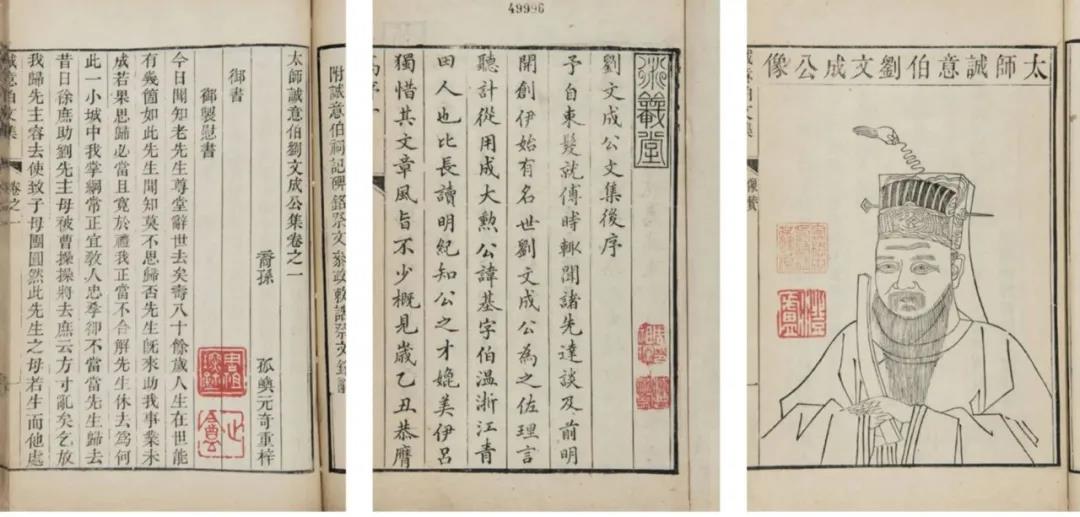 附誠意伯祠記碑銘祭文
太師誠意伯劉文成公集卷之一
裔孫 孤嶼元奇重梓
御書
御製慰書
今日聞知老先生尊堂辭世去矣壽八十餘歲人生在世能
有幾箇如此先生聞知莫不思歸否先生旣來助我事業未
成若果思歸必當且寬於禮我正當不合解先生休去為何
此一小城中我掌綱常正宜敎人忠孝卻不當當先生歸去
昔日徐庶助劉先主母被曹操操將去庶云方寸亂矣乞放
我歸先主容去使致子母團圓然此先生之母若生而他處
誠意伯文集
卷之一
49996
劉文成公文集後序
予自束髮就傅時輒聞諸先達談及前明
開創伊始有名世劉文成公為之佐理言
聽計從用成大勲公諱基字伯溫浙江青
田人也比長讀明紀知公之才媲美伊呂
獨惜其文章風旨不少概見歲乙丑恭膺
太師誠意伯劉文成公像
像贊